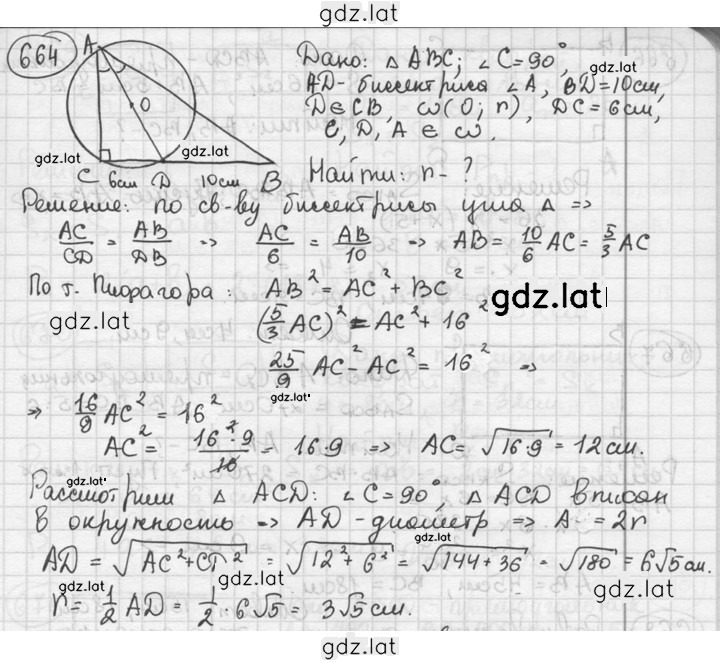 gdz.lat
664
A
O
C 6см D 10см B
gdz.lat
gdz.lat
Дано: △ ABC; ∠C=90°,
gdz.lat
AD-биссектриса ∠A, BD=10см,
D∈CB, ω(O; r), DC=6см,
C, D, A ∈ ω.
gdz.lat
Найти: r-?
Решение: по св-ву биссектрисы угла △ =>
AC/CD = AB/DB => AC/6 = AB/10 => AB= 10/6 AC= 5/3 AC
По т. Пифагора: AB² = AC² + BC²
gdz.lat
gdz.lat
(5/3 AC)² = AC² + 16²
25/9 AC² - AC² = 16² =>
gdz.lat
=> 16/9 AC² = 16²
AC² = 16²·9/16 = 16·9 => AC= √16·9 = 12см.
gdz.lat
Рассмотрим △ ACD: ∠C=90°, △ ACD вписан
в окружность => AD-диаметр => A = 2r
gdz.lat
AD = √AC²+CD² = √12²+6² = √144+36 = √180 = 6√5см.
gdz.lat
gdz.lat
r= 1/2 AD = 1/2 · 6√5 = 3√5см.
gdz.lat